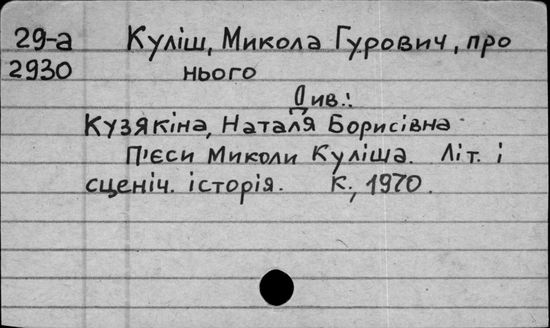 29-а Куліш, Микола Гурович, про
2930 нього
Див.:
Кузякіна, Наталя Борисівна
П'єси Миколи Куліша. Літ. і
сценіч. історія. К., 1970.